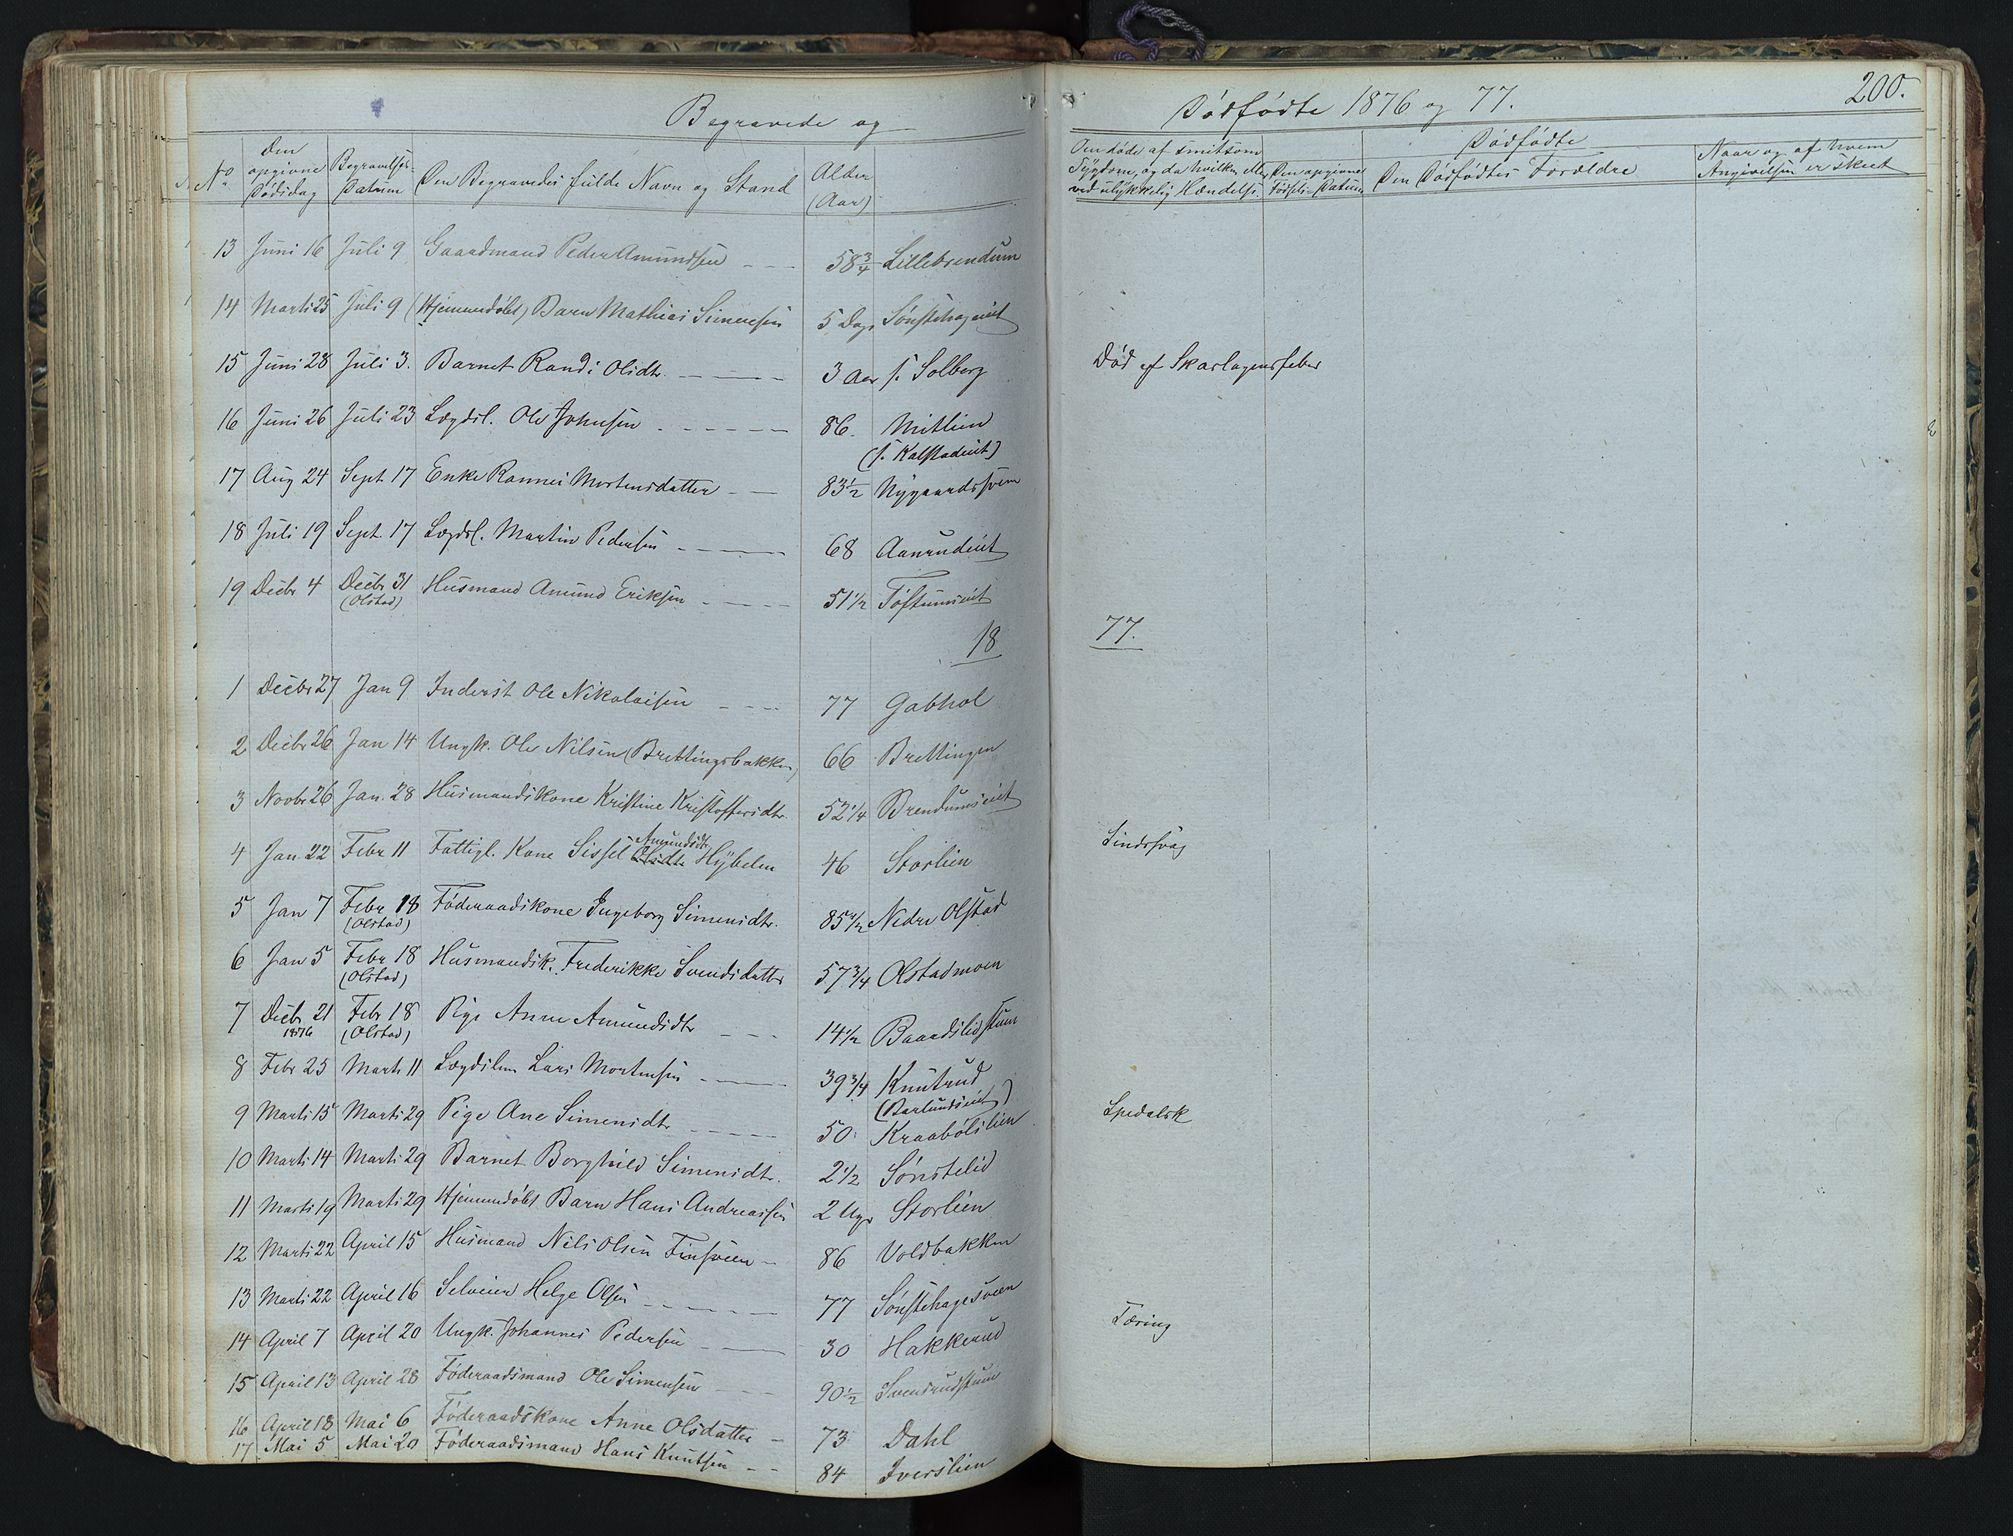 Begravede og
Dødfødte 1876 og 77.
200.
No
Den opgivne Dødsdag
Begravelses-Datum
Den Begravedes fulde Navn og Stand
Alder (Aar)
Den døde af smitsom Sygdom, og da hvilken eller ved ulykkelig Hændelse.
Den opgivne Fødsels-Datum
Dødfødte
Den Dødfødtes Forældre
Naar og af hvem Angivelsen er skeet
13 Juni 16 Juli 9 Gaardmand Peder Amundsen 58 3/4 Lillebrendum
14 Marti 25 Juli 9 (Hjemmedøbt) Barn Mathias Simensen 5 Dage Sønstehageiet
15 Juni 28 Juli 3. Barnet Randi Olsdtr. 3 Aar f. Solberg Død af Skarlagensfeber
16 Juni 26 Juli 23 Lægdsl. Ole Johnsen 86. Mitlien
(f. Kalstadeiet)
17 Aug 24 Sept 17 Enke Rannei Mortensdatter 83 1/2 Nygaardssveen
18 Juli 19 Sept 17 Lægdsl. Martin Pedersen 68 Aanrudeiet
19 Decbr 4 Decbr 31 (Olstad) Husmand Amund Eriksen 51 1/2 Toftumseiet
18 77.
1 Decbr 27 Jan 9 Inderst Ole Nikolaisen 77 Gabhol
2 Decbr 26 Jan 14 Ungk. Ole Nilsen (Brettingsbakken) 66 Brettingen
3 Novbr 26 Jan. 28 Husmandskone Kristine Kristoffersdtr. 52 1/4 Brendumseiet
4 Jan 22 Febr 11 Fattigl. Kone Sissel Olsdtr. Amundsdtr Hybelen 46 Storlien Sindssvag
5 Jan 7 Febr 18 (Olstad) Føderaadskone Ingeborg Simensdtr. 85 1/2 Nedre Olstad
6 Jan 5 Febr 18 (Olstad) Husmandsk. Frederikke Svendsdatter 57 3/4 Olstadmoen
7 Decbr 21 1876 Febr 18 (Olstad) Pige Anne Amundsdtr 14 1/2 Baardslistuen
8 Febr 25 Marts 11 Lægdslem Lars Mortensen 39 3/4 Knutrud
(Barlundseiet)
9 Marti 15 Marti 29 Pige Ane Simensdtr 50 Kraabølslien Spedalsk
10 Marti 14 Marti 29 Barnet Borghild Simensdtr. 2 1/2 Sønstelid
11 Marti 19 Marti 29 Hjemmedøbt Barn Hans Andreassen 2 Uger Storlien
12 Marti 22 April 15 Husmand Nils Olsen Finsveen 86 Voldbakken
13 Marti 22 April 16 Selveier Helge Olsen 77 Sønstehagesveen
14 April 7 April 20 Ungk. Johannes Pedersen 30 Hakkerud Tæring
15 April 13 April 28 Føderaadsmand Ole Simensen 90 1/2 Svendrudstuen
16 April 18 Mai 6 Føderaadskone Anne Olsdatter 73 Dahl
17 Mai 5 Mai 20 Føderaadsmand Hans Knutsen 84 Iverslien